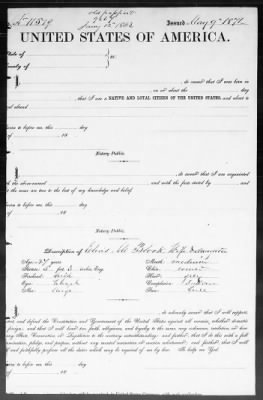 old passport
Issued May 9th 1872
UNITED STATES OF AMERICA.
State of
County of
ss:
, do swear that I was born in
on or about the day
, that I am a NATIVE AND LOYAL CITIZEN OF THE UNITED STATES, and about to
Sworn to before me, this day
of 18
Notary Public.
, do swear that I am acquainted
with the above-named and with the facts stated by
and true to the best of my knowledge and belief.
Sworn to before me, this day
of 18
Notary Public.
Description of
Age: 37 years
Mouth: medium
Stature: 5 feet inches, Eng.
Chin: round
Forehead: high
Hair: grey
Eyes: black
Complexion:
Nose: large
Face:
, do solemnly swear that I will support,
and defend the Constitution and Government of the United States against all enemies, whether domestic
or foreign; and that I will bear true faith, allegiance, and loyalty to the same, any ordinance, resolution or law
of any State, Convention or Legislature to the contrary notwithstanding; and further, that I do this with a full
determination, pledge, and purpose, without any mental reservation or evasion whatsoever; and further, that I will
well and faithfully perform all the duties which may be required of me by law. So help me God.